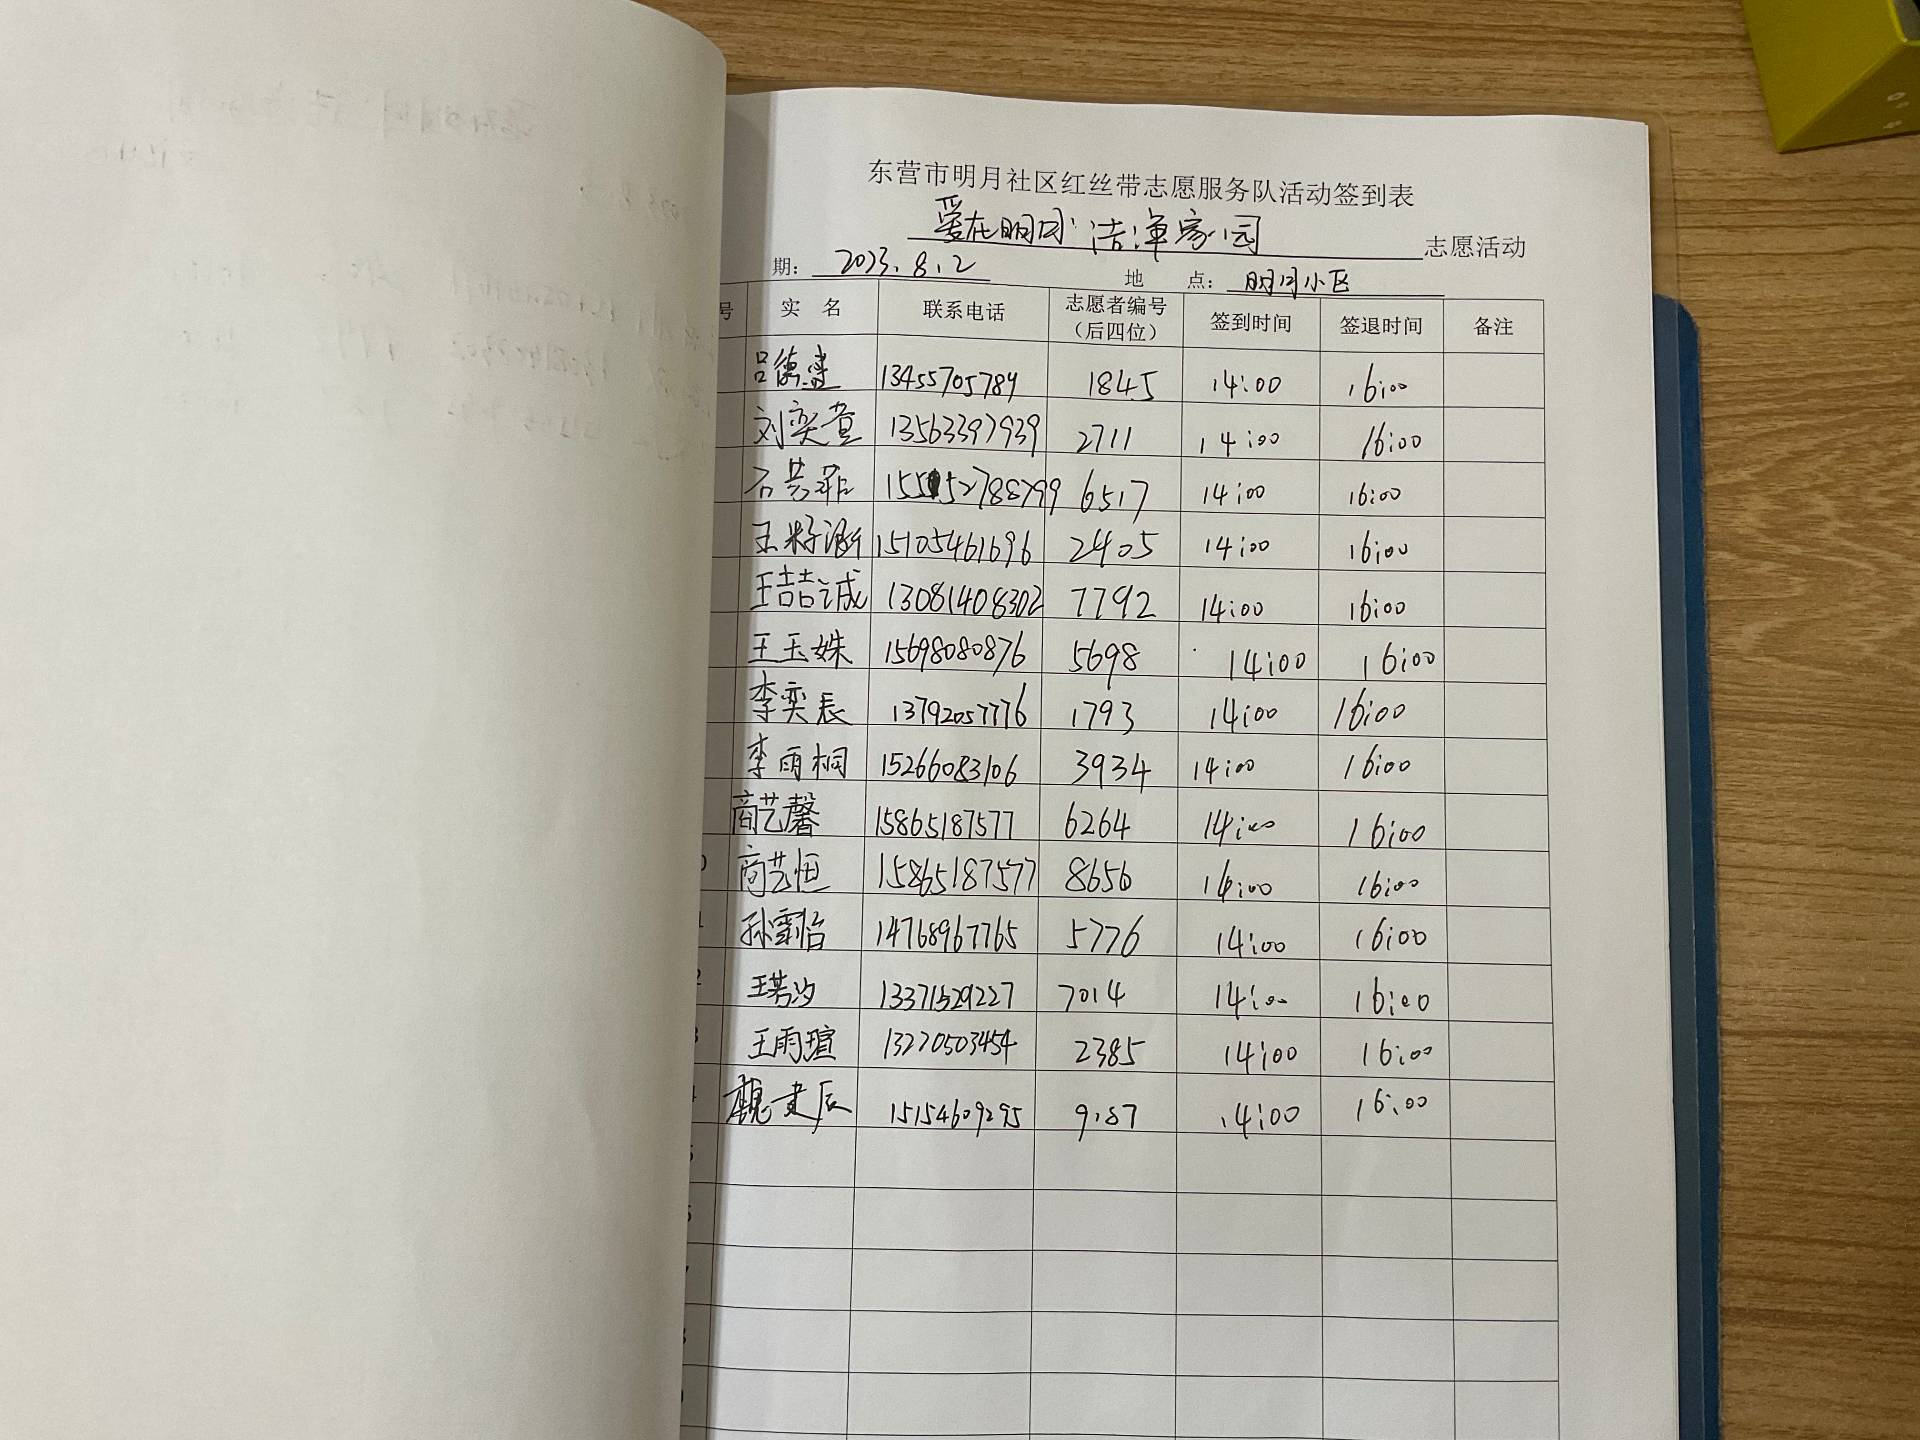 东营市明月社区红丝带志愿服务队活动签到表
爱在明月 洁净家园 志愿活动
期： 2023.8.2 地 点： 明月小区
号 实 名 联系电话 志愿者编号（后四位） 签到时间 签退时间 备注
吕德 13455705789 1845 14:00 16:00
刘奕萱 13563397939 2711 14:00 16:00
石 6517 14:00 16:00
王籽 15105461696 2405 14:00 16:00
王喆诚 13081408302 7792 14:00 16:00
王玉姝 15698080876 5698 14:00 16:00
李奕辰 13792057776 1793 14:00 16:00
李雨桐 15266083106 3934 14:00 16:00
商艺馨 15865187577 6264 14:00 16:00
商艺恒 15865187577 8656 14:00 16:00
孙怡 14768967765 5776 14:00 16:00
王若汐 13371529227 7014 14:00 16:00
王雨瑄 13220503454 2385 14:00 16:00
魏 辰 15154609295 9187 14:00 16:00